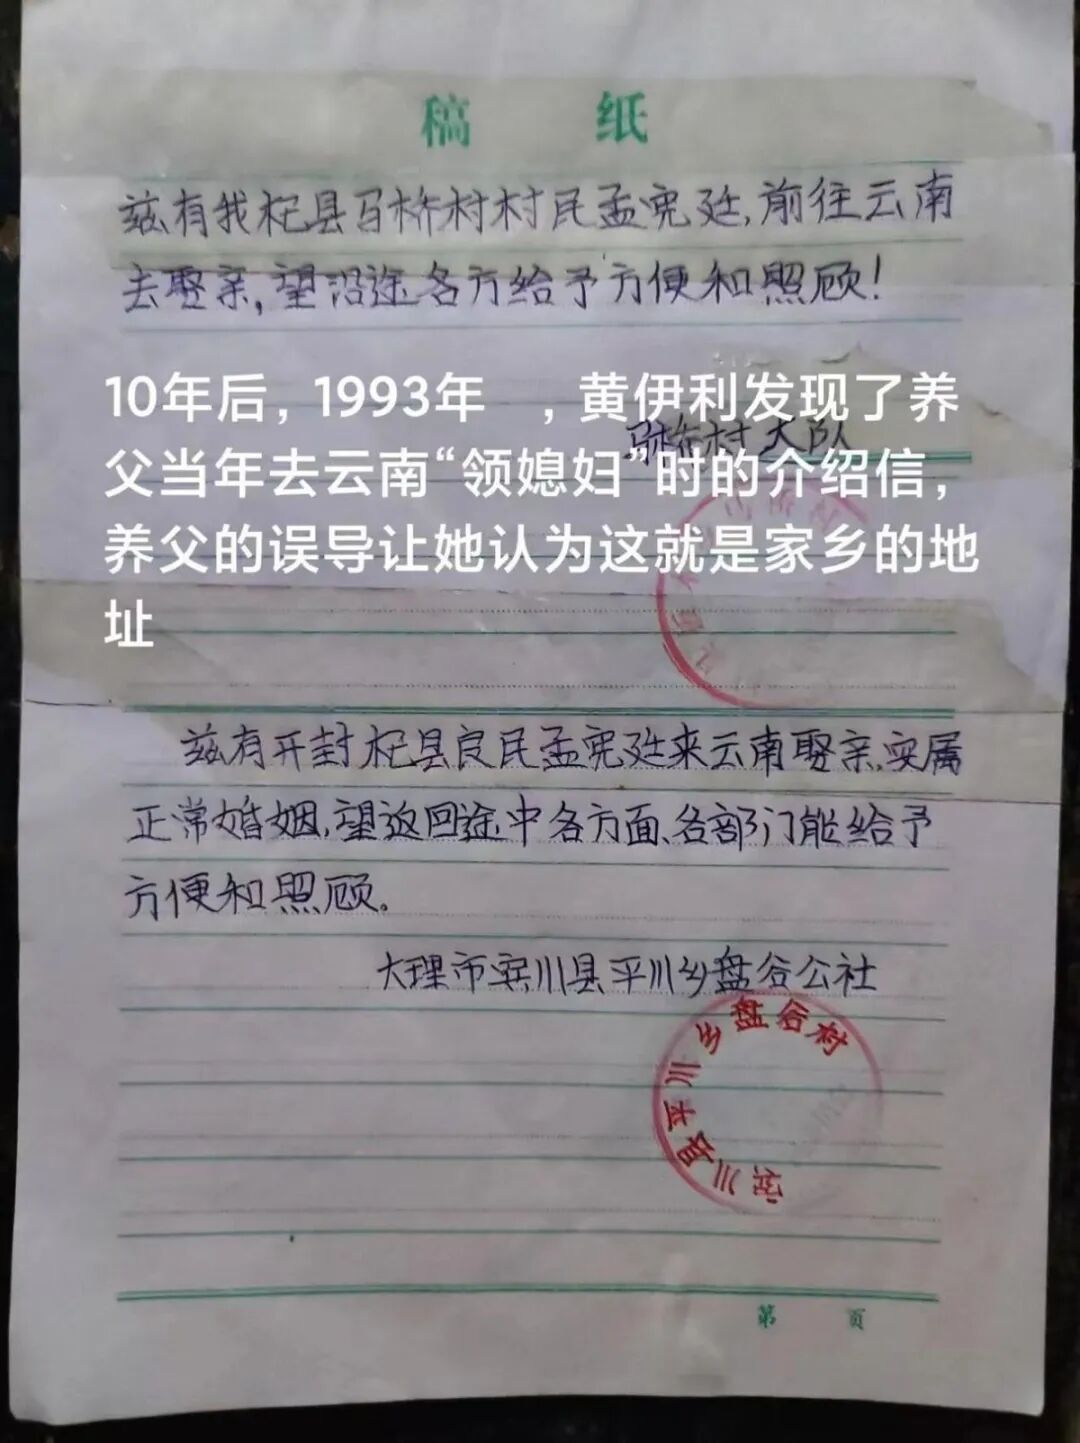 稿 纸
兹有我杞县马桥村村民孟宪廷,前往云南
去娶亲,望沿途各方给予方便和照顾!
10年后，1993年 ，黄伊利发现了养
父当年去云南“领媳妇”时的介绍信，
养父的误导让她认为这就是家乡的地
址
马桥村大队
兹有开封杞县良民孟宪廷来云南娶亲.实属
正常婚姻,望返回途中各方面、各部门能给予
方便和照顾。
大理市宾川县平川乡盘谷公社
宾川县平川乡盘谷村
第 页